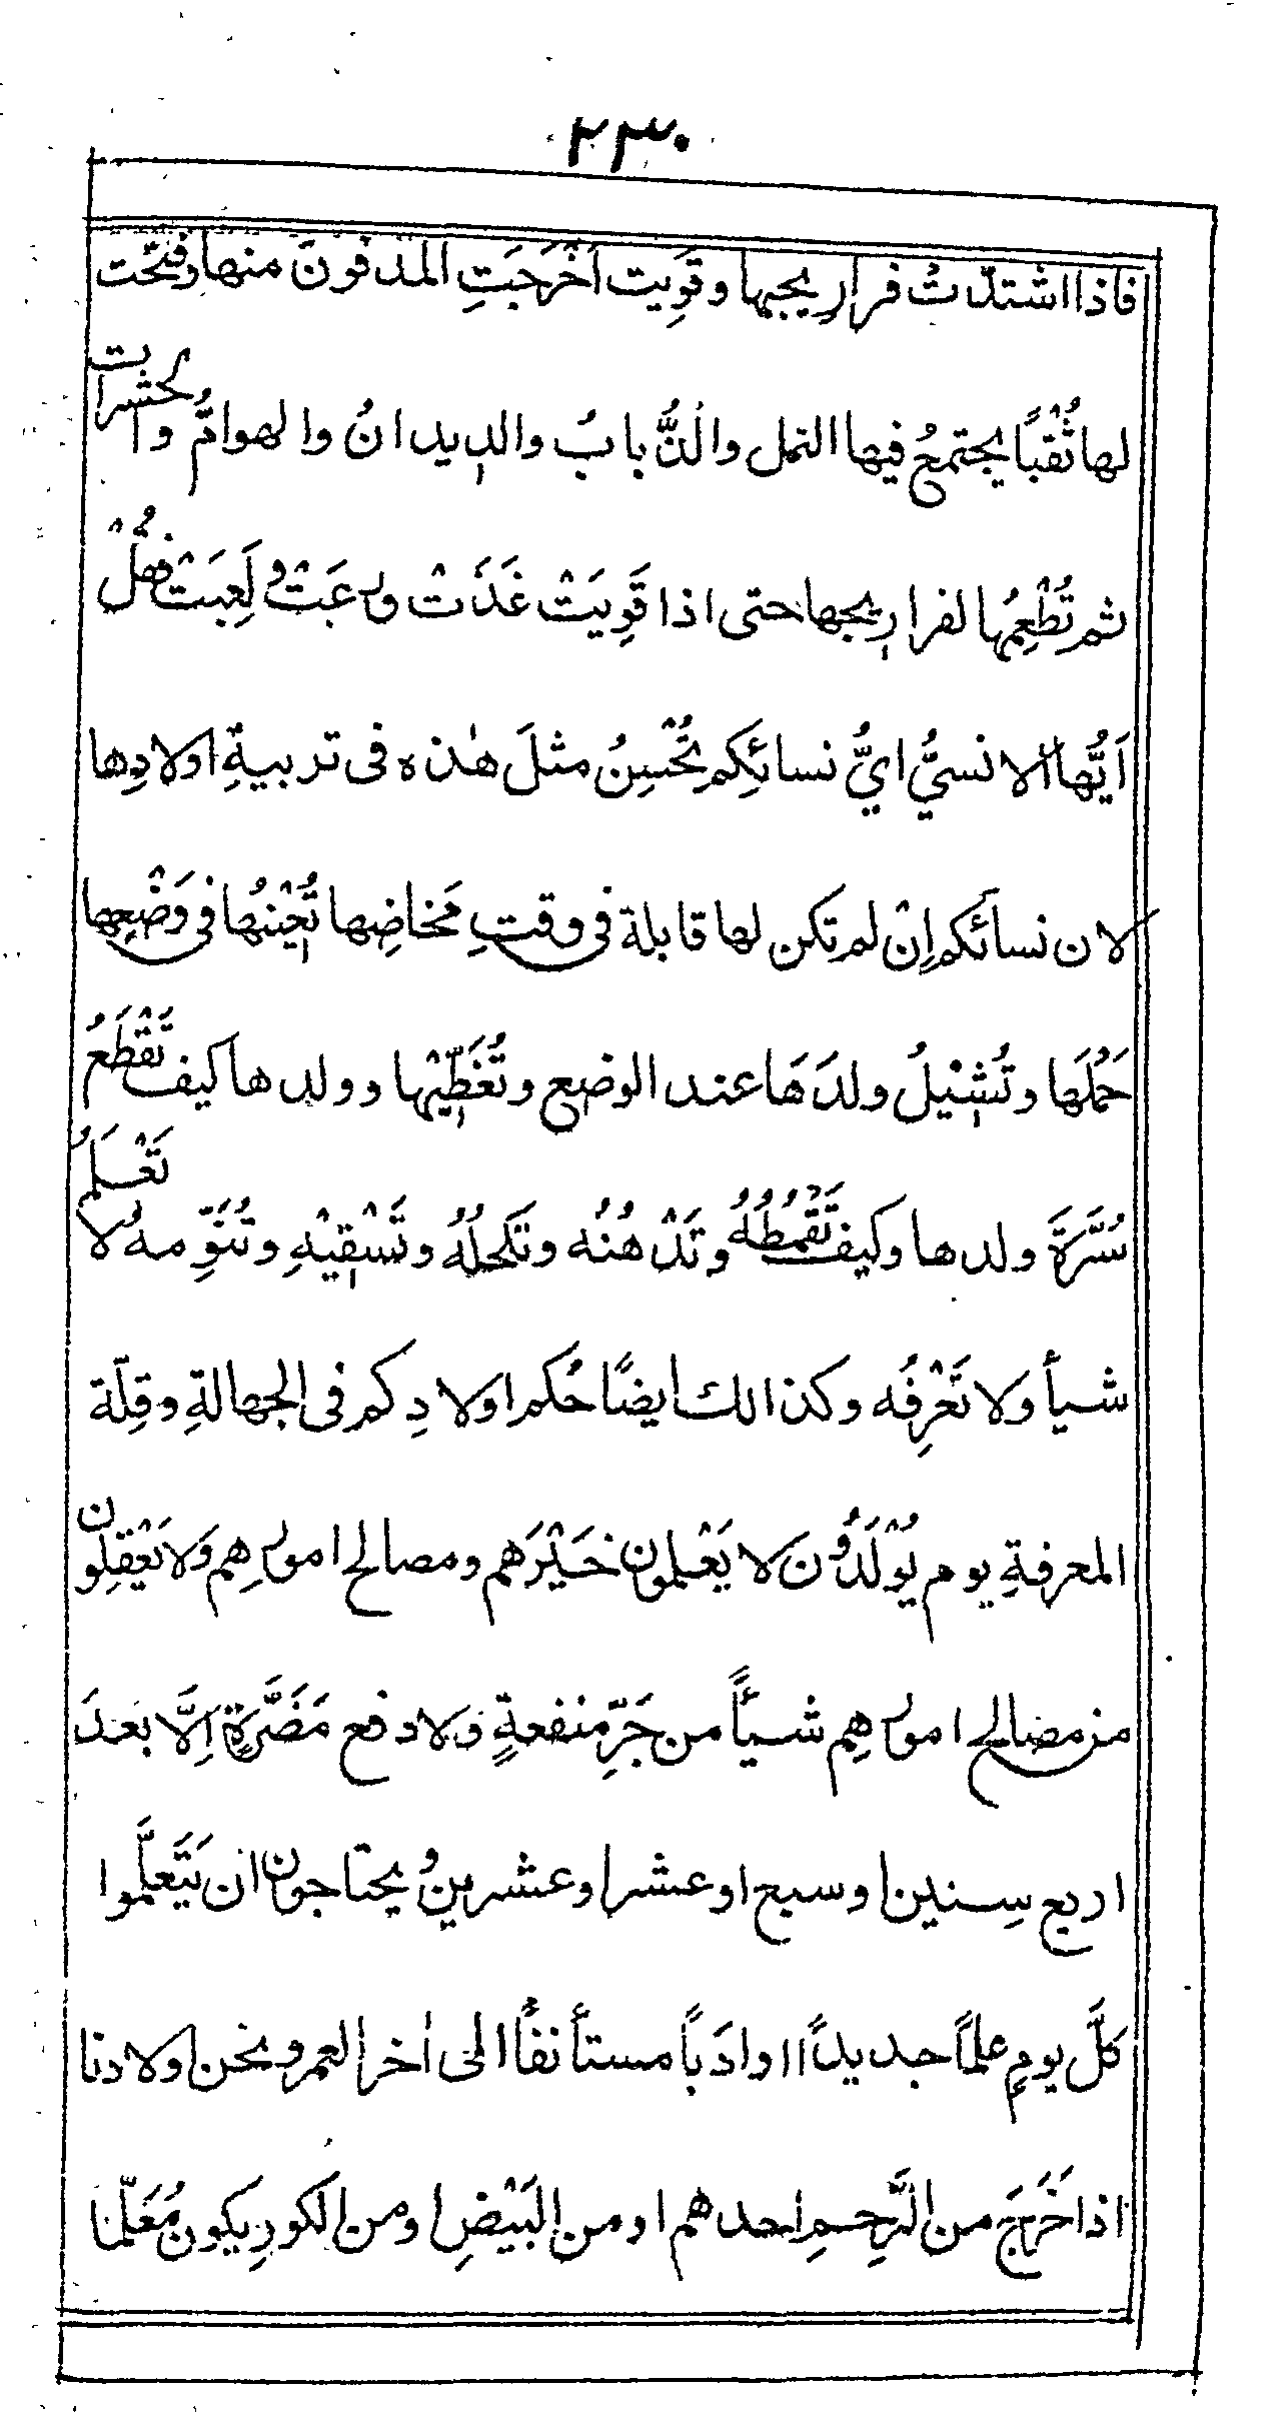 ٢٣٠
فاذا اشتدّتْ فراريجها وقَوِيت اَخْرَجَتِ المدفونَ منها وفتّحت
لها ثُقْبًا يجتمعُ فيها النمل والذُّبابُ والديدانُ والهوامُّ والحشرات
ثم تُطْعِمُها لفراريجها حتى اذا قَوِيَتْ غَدَتْ ورعَتْ ولَعِبَتْ فقُلْ
اَيُّها الانسيُّ ايُّ نسائِكم تُحْسِنُ مثلَ هٰذه فى تربيةِ اولادِها
لان نسائَكم اِنْ لم تكن لها قابلة فى وقتِ مَخاضِها تُعِينُها فى وَضْعِها
حَمْلَها وتُشِيْلُ ولدَهَا عند الوضع وتُغَطِّيْها وولدها كيف تَقْطَعُ
سُرَّةَ ولدها وكيف تَقْمُطُهُ وتَدْهُنُه وتكحلُهُ وتَسْقِيْهِ وتُنَوِّمهُ لا تَعْلَمُ
شيأ ولا تَعْرِفُه وكذالك ايضًا حُكم اولادِكم فى الجهالةِ وقِلّة
المعرفةِ يوم يُوْلَدُوْنَ لا يَعْلمون خَيْرَهم ومصالح امورِهم ولا يَعْقِلون
من مصالح امورهِم شيأً من جَرِّ منفعةٍ ولا دفع مَضَرَّةٍ اِلَّا بعدَ
اربع سِنين او سبع او عشر او عشرين ويحتاجون ان يَتَعلَّموا
كلَّ يومٍ علماً جديداً او ادَباً مستأنفاً الى اٰخر العمر ونحن اولادنا
اذا خَرَجَ من الرَّحِمِ احدهم او من البَيْضِ او من الكورِ يكون مُعَلَّما